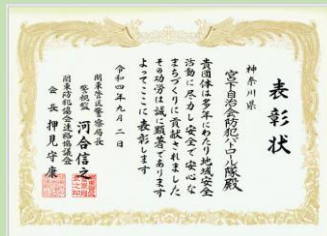 表彰状
神奈川県
宮下自治会防犯パトロール隊殿
貴団体は多年にわたり地域安全
活動に尽力し安全で安心な
まちづくりに貢献されました
その功労は誠に顕著であります
よってここに表彰します
令和四年九月二日
関東管区警察局長
警視監 河合信之
関東防犯協会連絡協議会
会長 押見守康